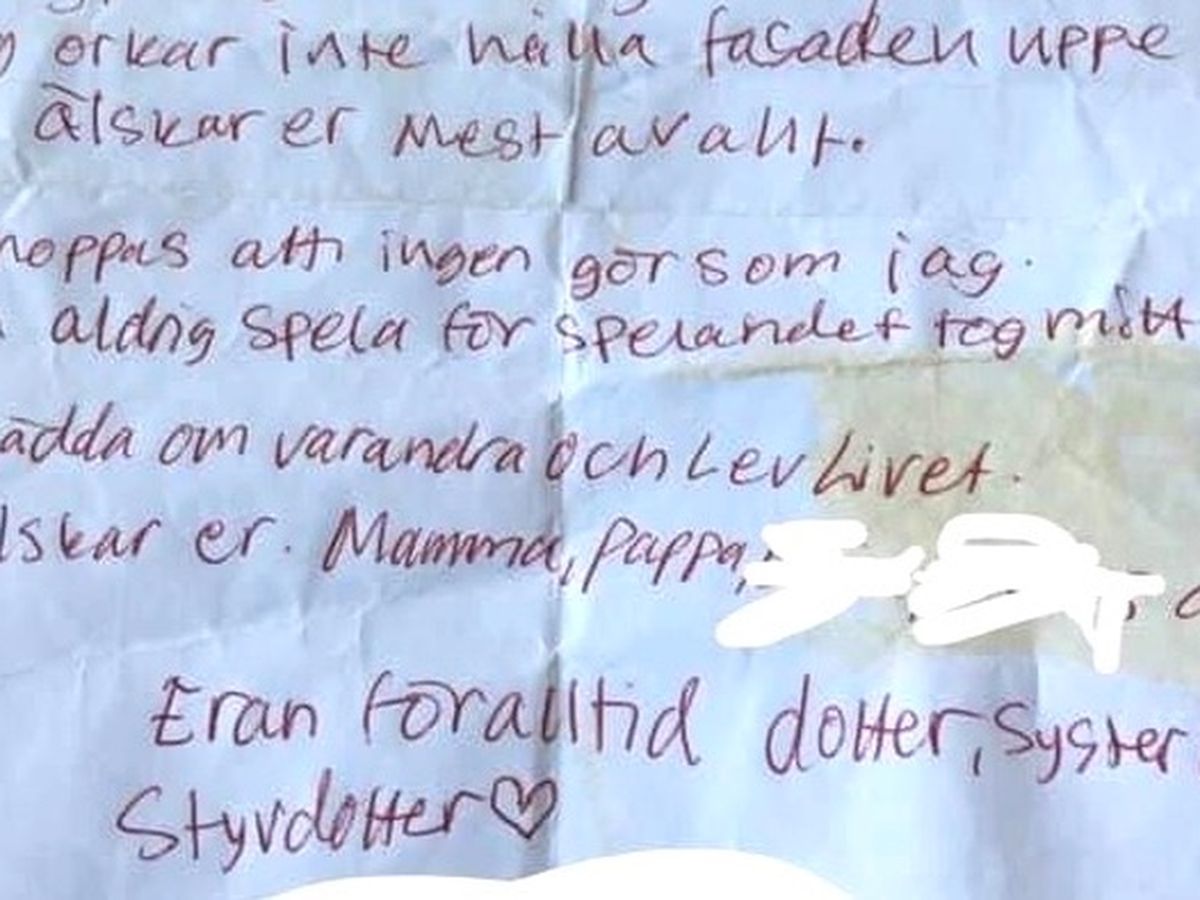 orkar inte hålla fasaden uppe
älskar er mest av allt.
hoppas att ingen gör som jag.
aldrig spela för spelandet tog mitt
ädda om varandra och Lev Livet.
lskar er. Mamma, pappa,
Eran föralltid dotter, syster,
Styvdotter♡